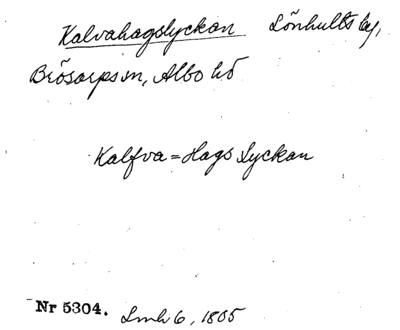 Kalvahagslyckan Lönhults by,
Brösarps sn, Albo hd
Kalfva=Hags Lyckan
Nr 5304. Lmh 6, 1805